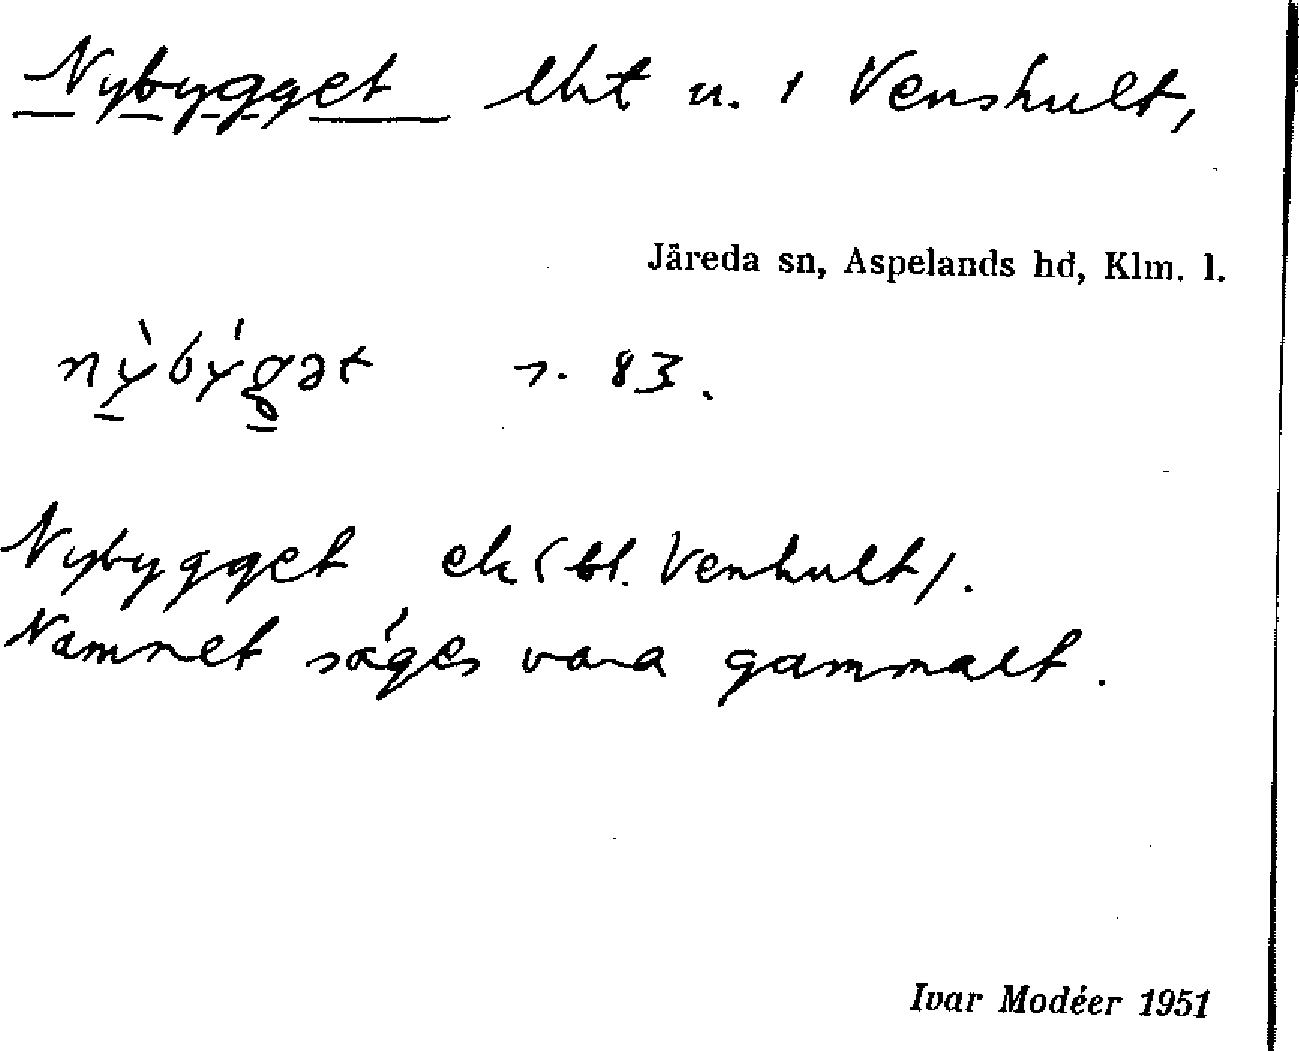 Nybygget lht u. 1 Venshult,
Järeda sn, Aspelands hd, Klm. l.
nỳbýgət r. 83.
Nybygget ek (bl. Venhult).
Namnet säges vara gammalt.
Ivar Modéer 1951